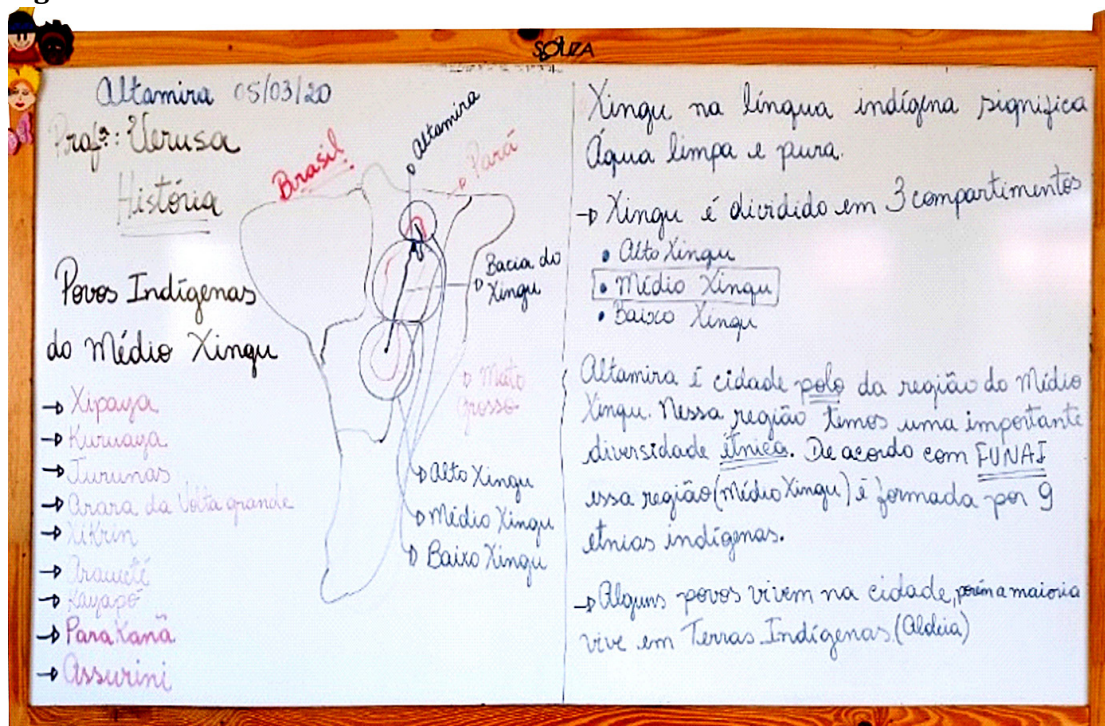 SOUZA
Altamira 05/03/20
Profª: Verusa
História
Povos Indígenas
do Médio Xingu
→ Xipaya
→ Kuruaya
→ Jurunas
→ Arara da Volta grande
→ Xikrin
→ Araweté
→ Kayapó
→ ParaKanã
→ Assurini
Brasil
Altamira
Pará
Bacia do
Xingu
Mato
Grosso
Alto Xingu
Médio Xingu
Baixo Xingu
Xingu na língua indígena significa
Água limpa e pura.
→ Xingu é dividido em 3 compartimentos
• Alto Xingu
• Médio Xingu
• Baixo Xingu
Altamira é cidade polo da região do Médio
Xingu. Nessa região temos uma importante
diversidade étnica. De acordo com FUNAI
essa região (Médio Xingu) é formada por 9
etnias indígenas.
→ Alguns povos vivem na cidade, porém a maioria
vive em Terras Indígenas. (Aldeia)